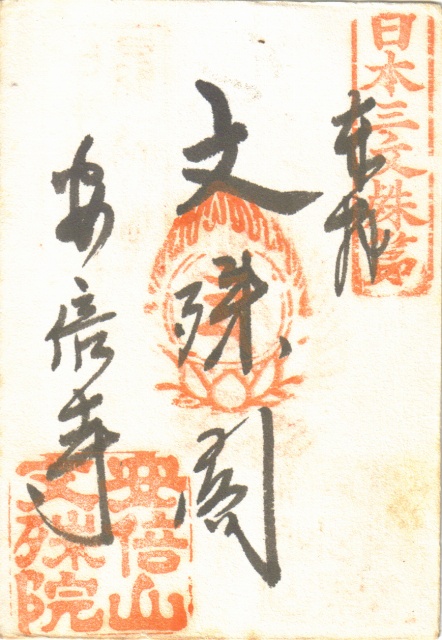 日本三文殊第
奉拝
文殊閣
安倍寺
安倍山
文殊院